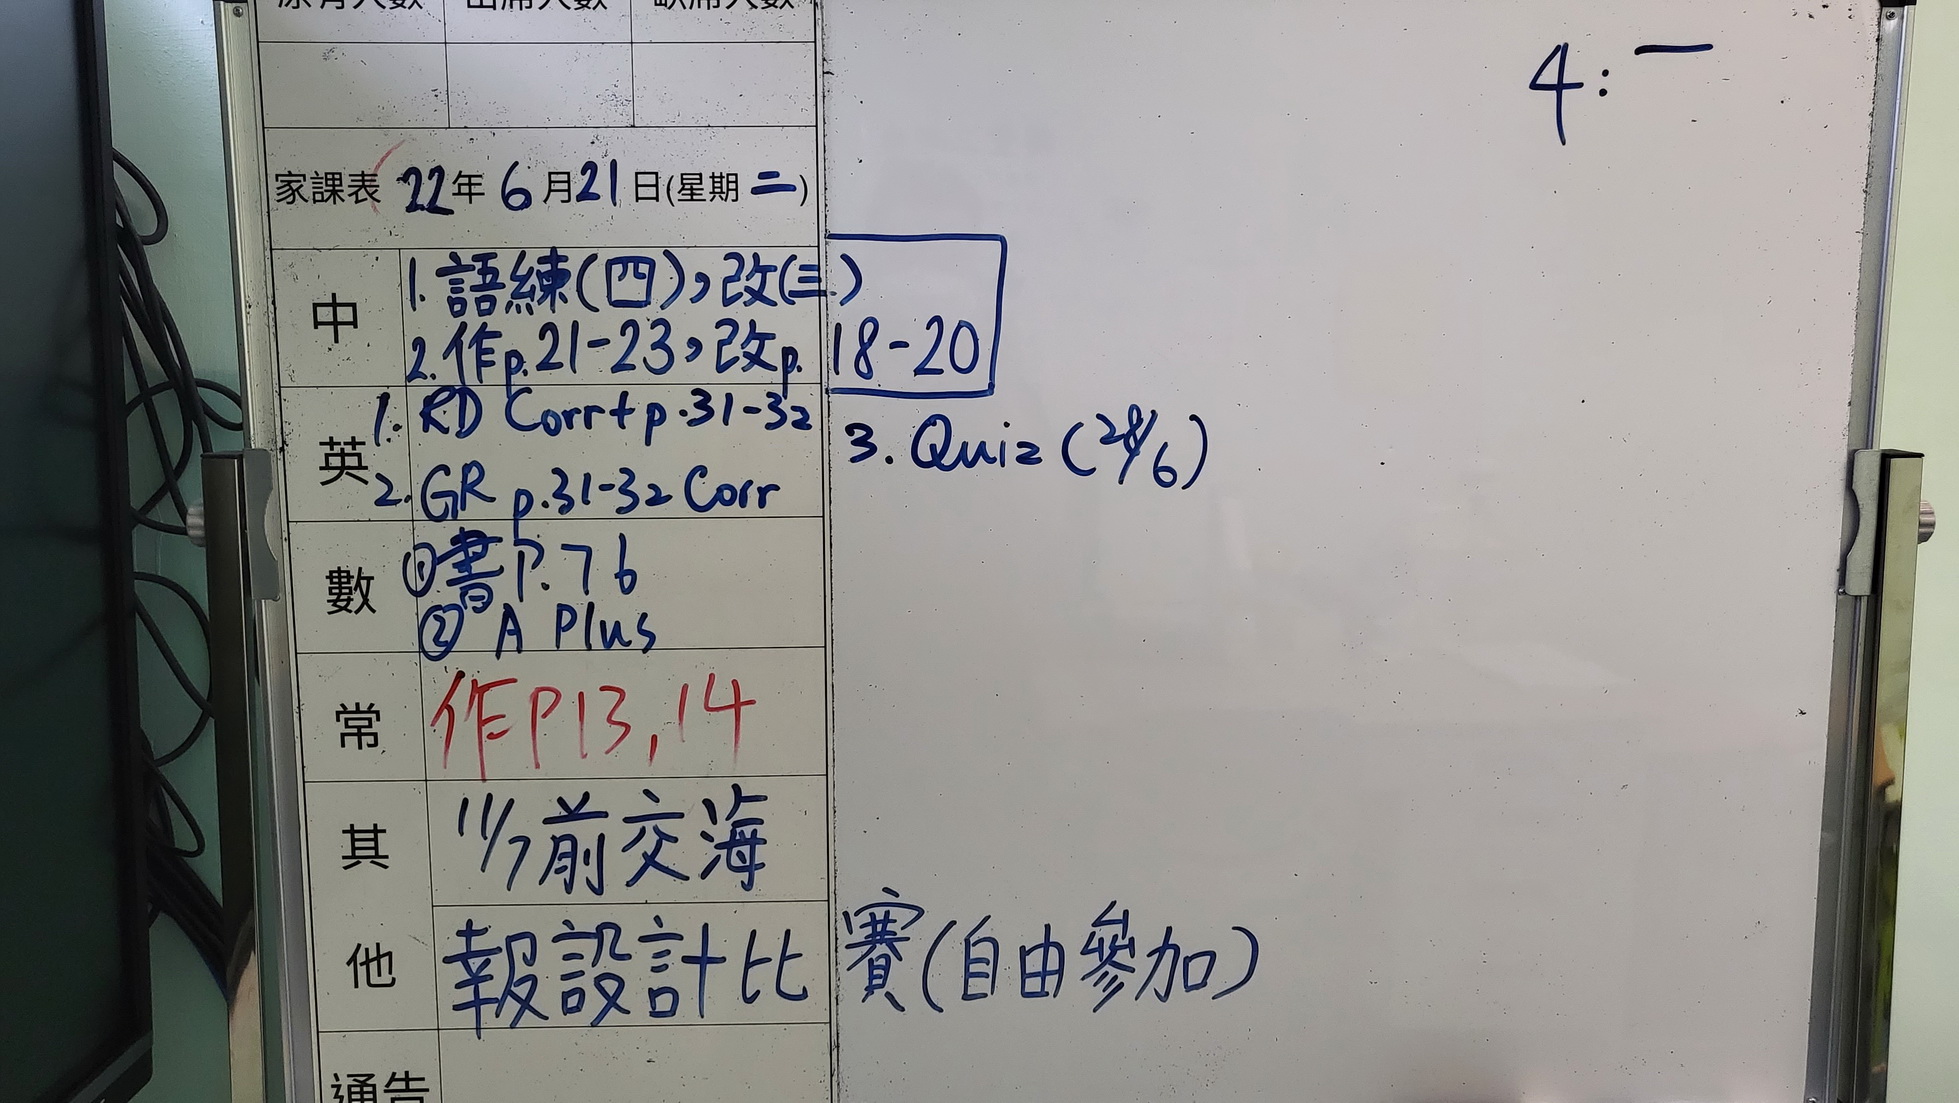 原有人數 出席人數 缺席人數
4:一
家課表 22年6月21日(星期二)
中
1. 語練(四),改(三)
2. 作p.21-23,改p.18-20
英
1. RD Corr+p.31-32
2. GR p.31-32 Corr
3. Quiz (28/6)
數
① 書P.76
② A Plus
常
作P13,14
其他
11/7前交海
報設計比賽(自由參加)
通告